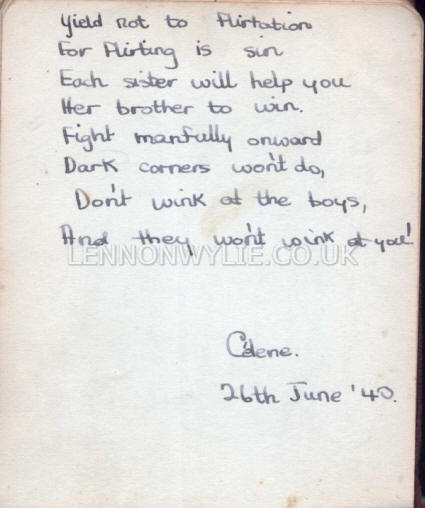 Yield not to Flirtation
For Flirting is sin
Each sister will help you
Her brother to win.
Fight manfully onward
Dark corners won't do,
Don't wink at the boys,
And they won't wink at you!
LENNONWYLIE.CO.UK
26th June '40.